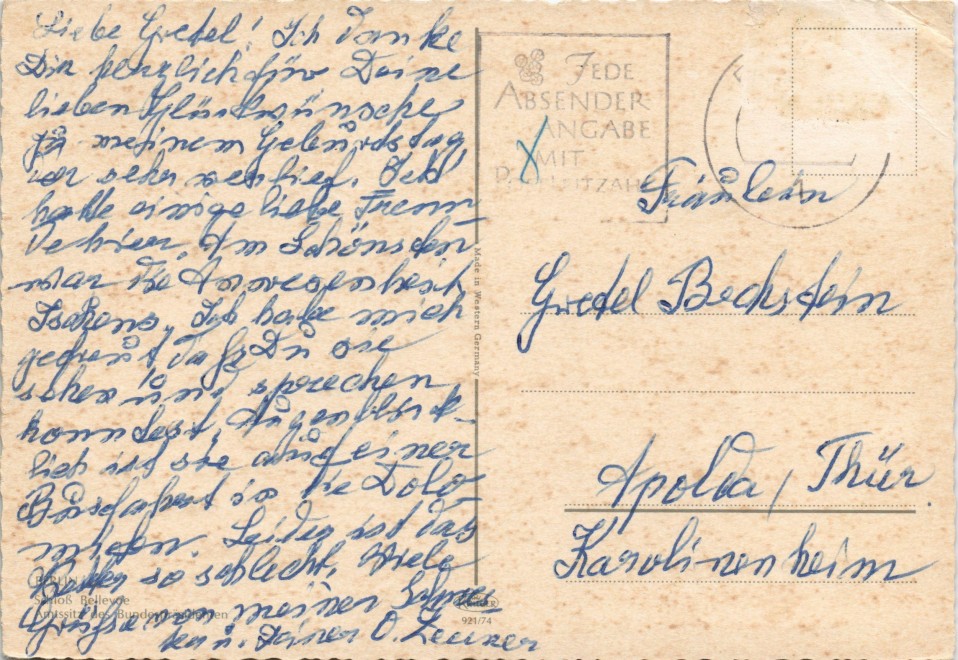 Liebe Gretel! Ich danke
Dir herzlich für Deine
lieben Glückwünsche
zu meinem Geburtstag
der sehr verlief. Ich
hatte einige liebe Freun
de hier. Am Schönsten
war die Anwesenheit
Ich habe mich
gefreut daß Du sie
sehen und sprechen
konntest. Augenblick-
lich ist sie auf einer
Busfahrt in die Dolo-
miten. Leider ist das
Wetter so schlecht. Viele
Grüße von meiner
u. Deiner O.
BERLIN
Schloß Bellevue
Amtssitz des Bundespräsidenten
Made in Western Germany
921/74
JEDE
ABSENDER-
ANGABE
MIT
POSTLEITZAHL
Fräulein
Gretel Bechstein
Apolda, Thür.
Karolinenheim